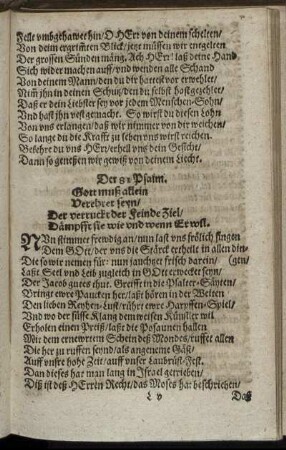 Felle vmbgehawet hin/ O HErr von deinem schelten/
Von deim ergrim̃ten Blick/ jetz müssen wir entgelten
Der grossen Sünden mäng. Ach HErr/ laß deine Hand
Sich wider machen auff/ vnd wenden alle Schand
Von deinem Mann/ den du dir hattest vor erwehlet/
Nim̃ jhn in deinen Schutz/ den du selbst hast gezehlet/
Daß er dein Liebster sey vor jedem Menschen-Sohn/
Vnd hast jhn vest gemacht. So wirst du diesen Lohn
Von vns erlangen/ daß wir nimmer von dir weichen/
So lange du die Krafft zu leben vns wirst reichen.
Bekehre du vns HErr/ erhell vns dein Gesicht/
Dann so genesen wir gewiß von deinem Liecht.
Der 81 Psalm.
Gott muß allein
Verehret seyn/
Der verruckt der Feinde Ziel/
Dämpfft sie wie vnd wenn Er wil.
NUn stimmet frewdig an/ nun last vns frölich singen
Dem GOtt/ der vns die Stärck ertheilt in allen din-
Die so wir nemen für: nun jauchzet frisch darein/ (gen/
Laßt Seel vnd Leib zugleich in GOtt erwecket seyn/
Der Jacob gutes thut. Greifft in die Psalter-Säyten/
Bringt ewre Paucken her/ last hören in der Weiten
Den lieben Reyhen-Lust/ rührt ewre Harpffen-Spiel/
Vnd wo der süsse Klang dem weisen Künstler wil
Erholen einen Preiß/ laßt die Posaunen hallen
Mit dem ernewrtem Schein deß Mondes/ ruffet allen
Die her zu ruffen seynd/ als angeneme Gäst/
Auff vnsre hohe Zeit/ auff vnser Laubrüst-Fest.
Dan dieses hat man lang in Israel getrieben/
Diß ist deß HErrn Recht/ das Moses hat beschrieben/
L v
Daß